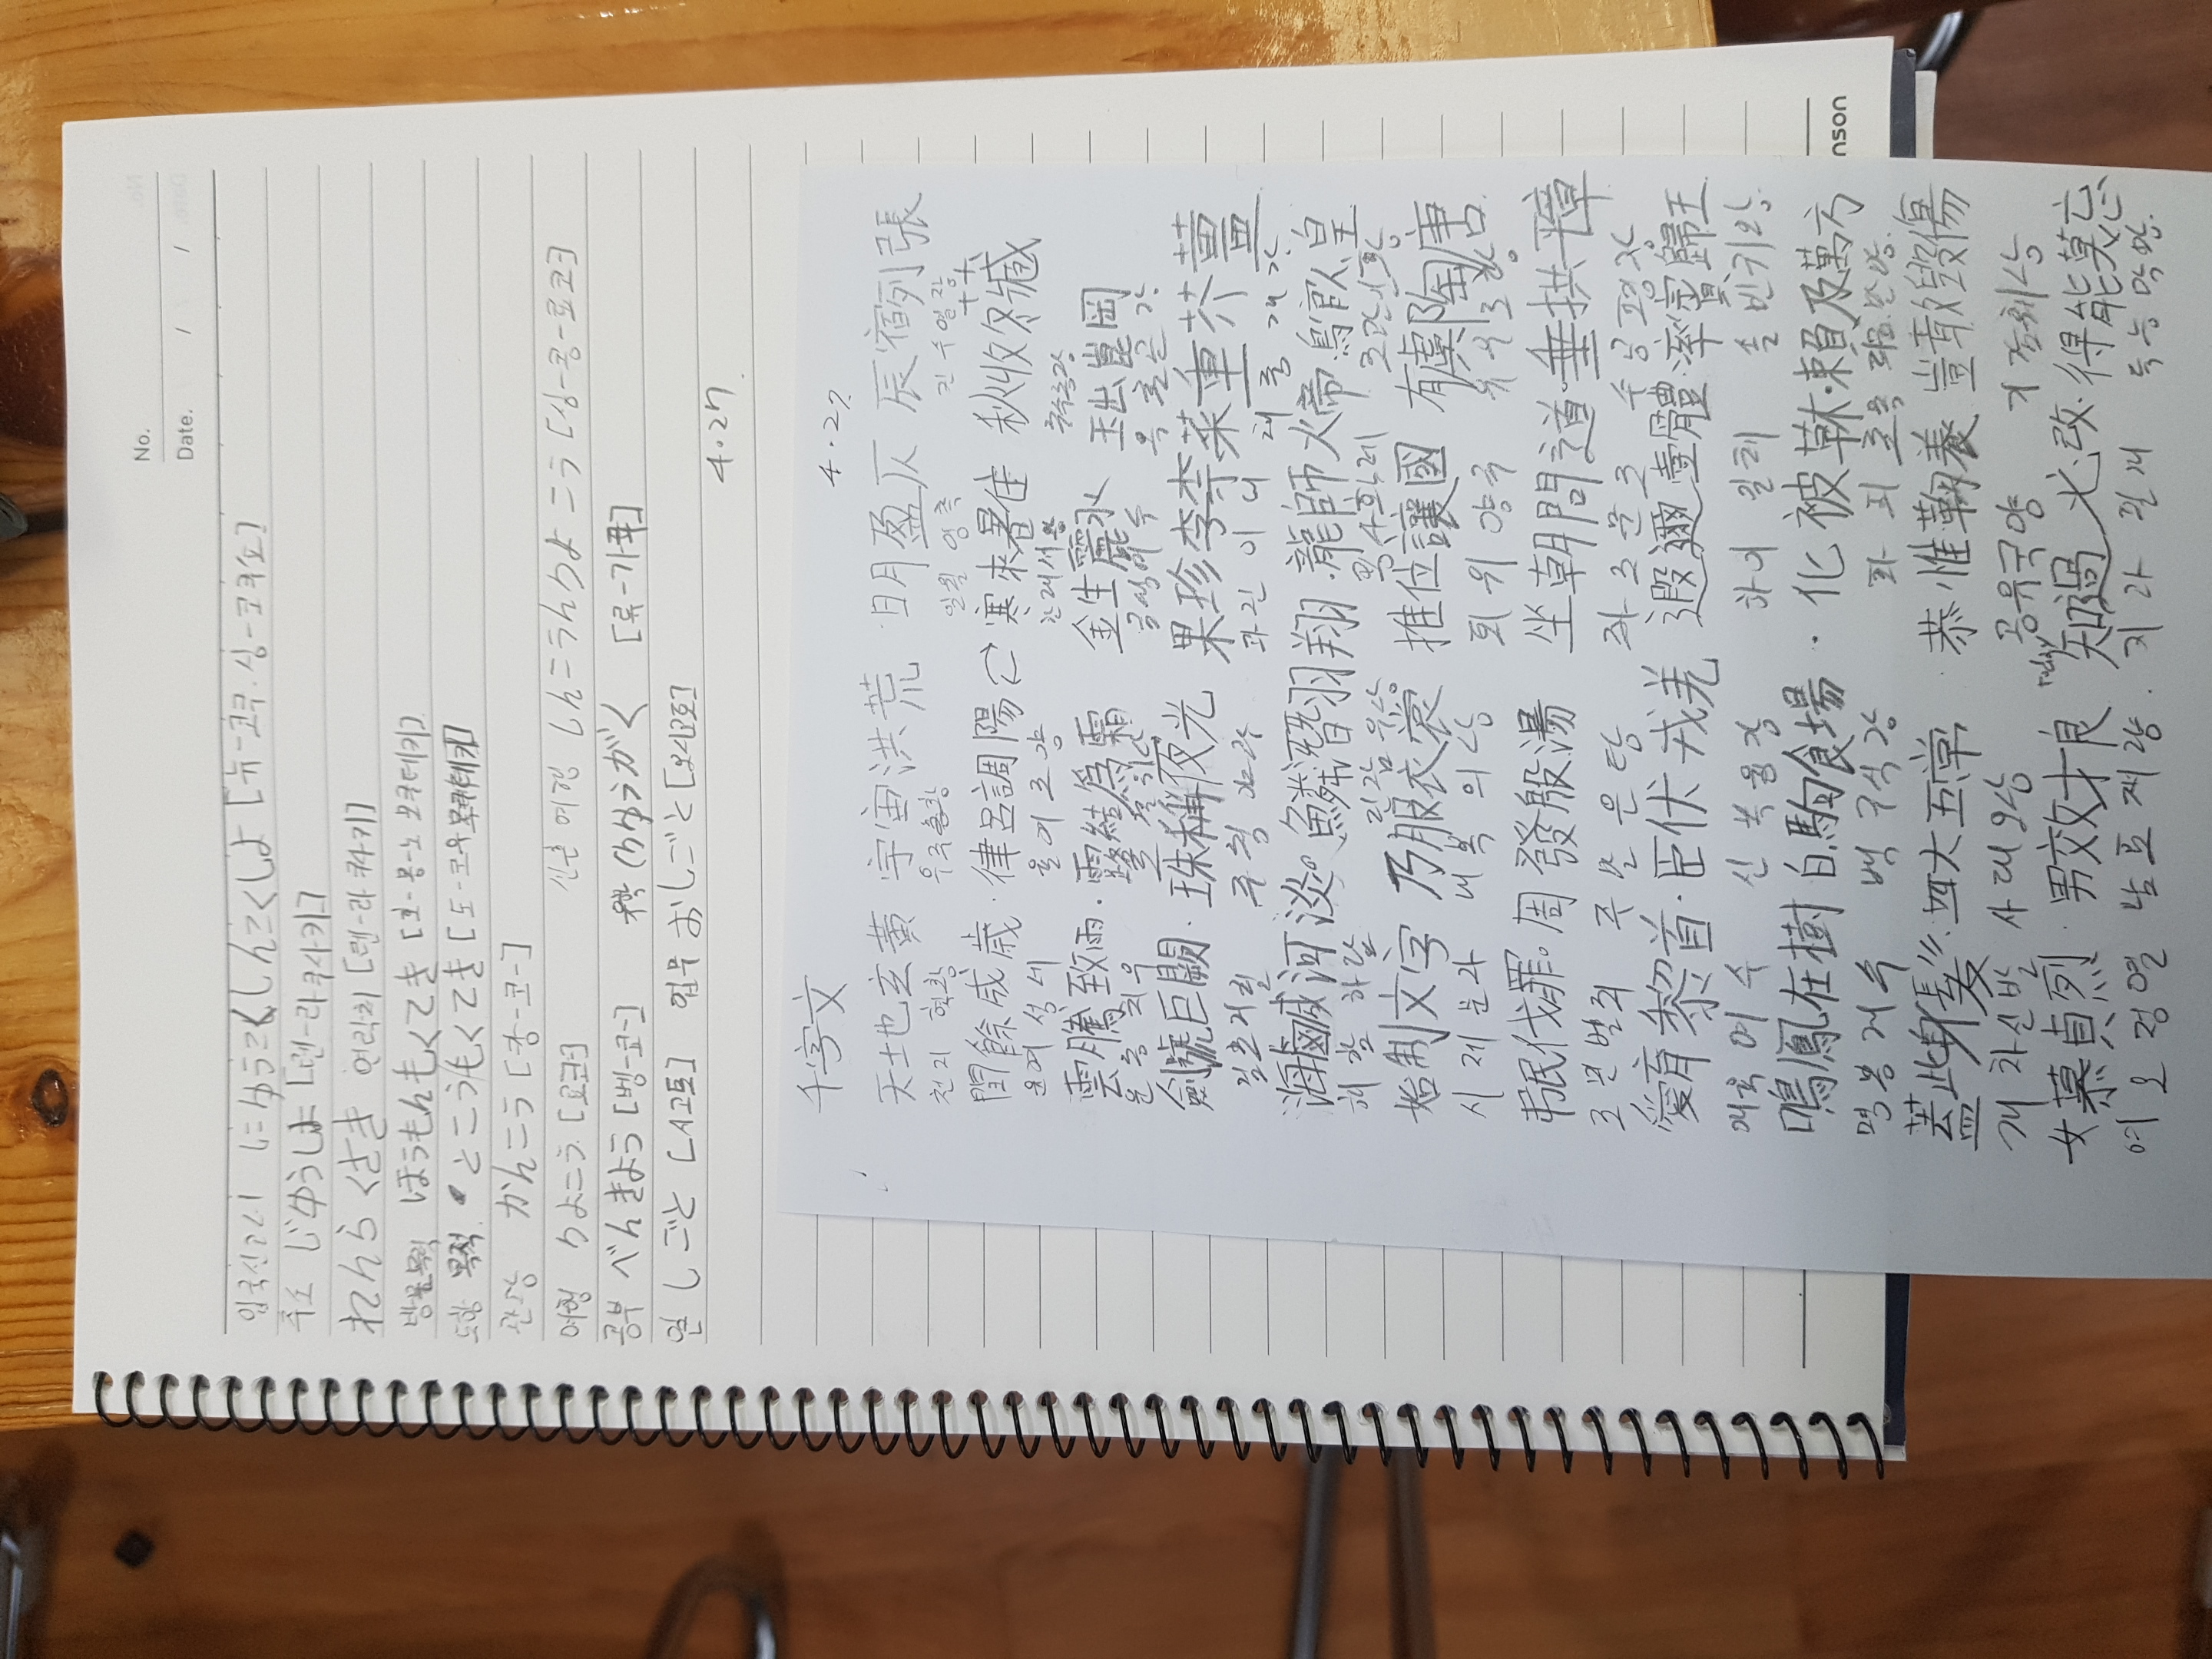 No.
Date. / /
입국신고서 にゅうこくしんこくしよ [뉴-코쿠.싱-코쿠쇼]
주소 じゆうしょ [렌-라쿠사키]
れんらくさき 연락처 [렌-라쿠사키]
방문목적 ほうもんもくてき [호-몽-모쿠테키]
도항 목적 とこうもくてき [도-코우모쿠테키]
관광 かんこう [캉-코-]
여행 りょこう [료코]
공부 べんきょう [벵-쿄-] 유학 (りゅうがく [류-가쿠]
일 しごと [시고토] 업무 おしごと [오시고토]
4.27
千字文 4.27
天地玄黃 宇宙洪荒 日月盈仄 辰宿列張
천지 현황 우주홍황 일월 영측 진수열장
閏餘成歲 律呂調陽 寒來暑往 秋收冬藏
윤여성세 율여조양 한래서왕 추수동장
雲騰致雨 露結爲霜 金生麗水 玉出崑岡
운등치우 금생여수 옥출곤강
劍號巨闕 珠稱夜光 果珍李柰 菜重芥薑
검호거궐 주칭야광 과진이내 채중개강
海鹹河淡 鱗潛羽翔 龍師火帝 鳥官人皇
해함하담 린잠우상 룡사화제 조관인황
始制文字 乃服衣裳 推位讓國 有虞陶唐
시제문자 내복의상 퇴위양국
弔民伐罪 周發殷湯 坐朝問道 垂拱平章
조민벌죄 주발은탕 좌조문도 수공평장
愛育黎首 臣伏戎羌 遐邇壹體 率賓歸王
애육여수 신복융강 하이일체 솔빈귀왕
鳴鳳在樹 白駒食場 化被草木 賴及萬方
명봉재수 백구식장 화피초목 뢰급만방
蓋此身髮 四大五常 恭惟鞠養 豈敢毁傷
개차신발 사대오상 공유국양 기감훼상
女慕貞烈 男效才良 知過必改 得能莫忘
여모정열 남효재량 지과필개 득능막망